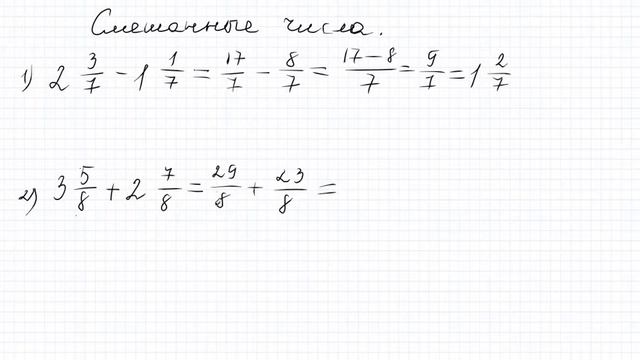 Смешанные числа.
1) 2 3/7 - 1 1/7 = 17/7 - 8/7 = (17-8)/7 = 9/7 = 1 2/7
2) 3 5/8 + 2 7/8 = 29/8 + 23/8 =